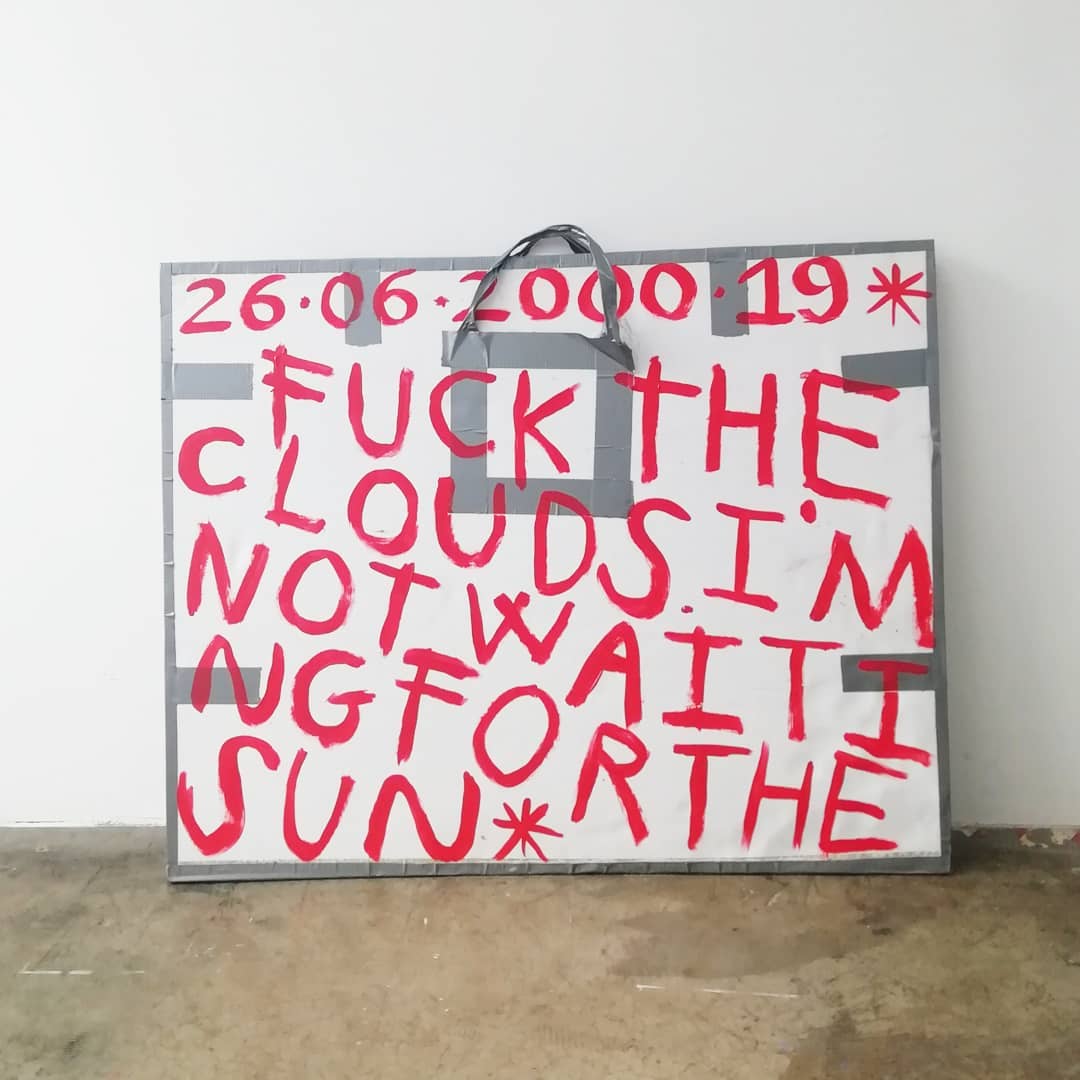 26·06·2000·19*
FUCK THE
CLOUDS I'M
NOT WAITI
NG FOR THE
SUN*